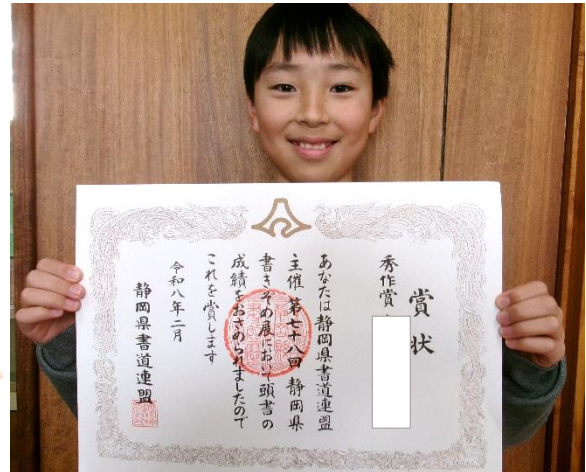 賞状
秀作賞
あなたは静岡県書道連盟
主催第七十八回静岡県
書きぞめ展において頭書の
成績をおさめられましたので
これを賞します
令和八年二月
静岡県書道連盟